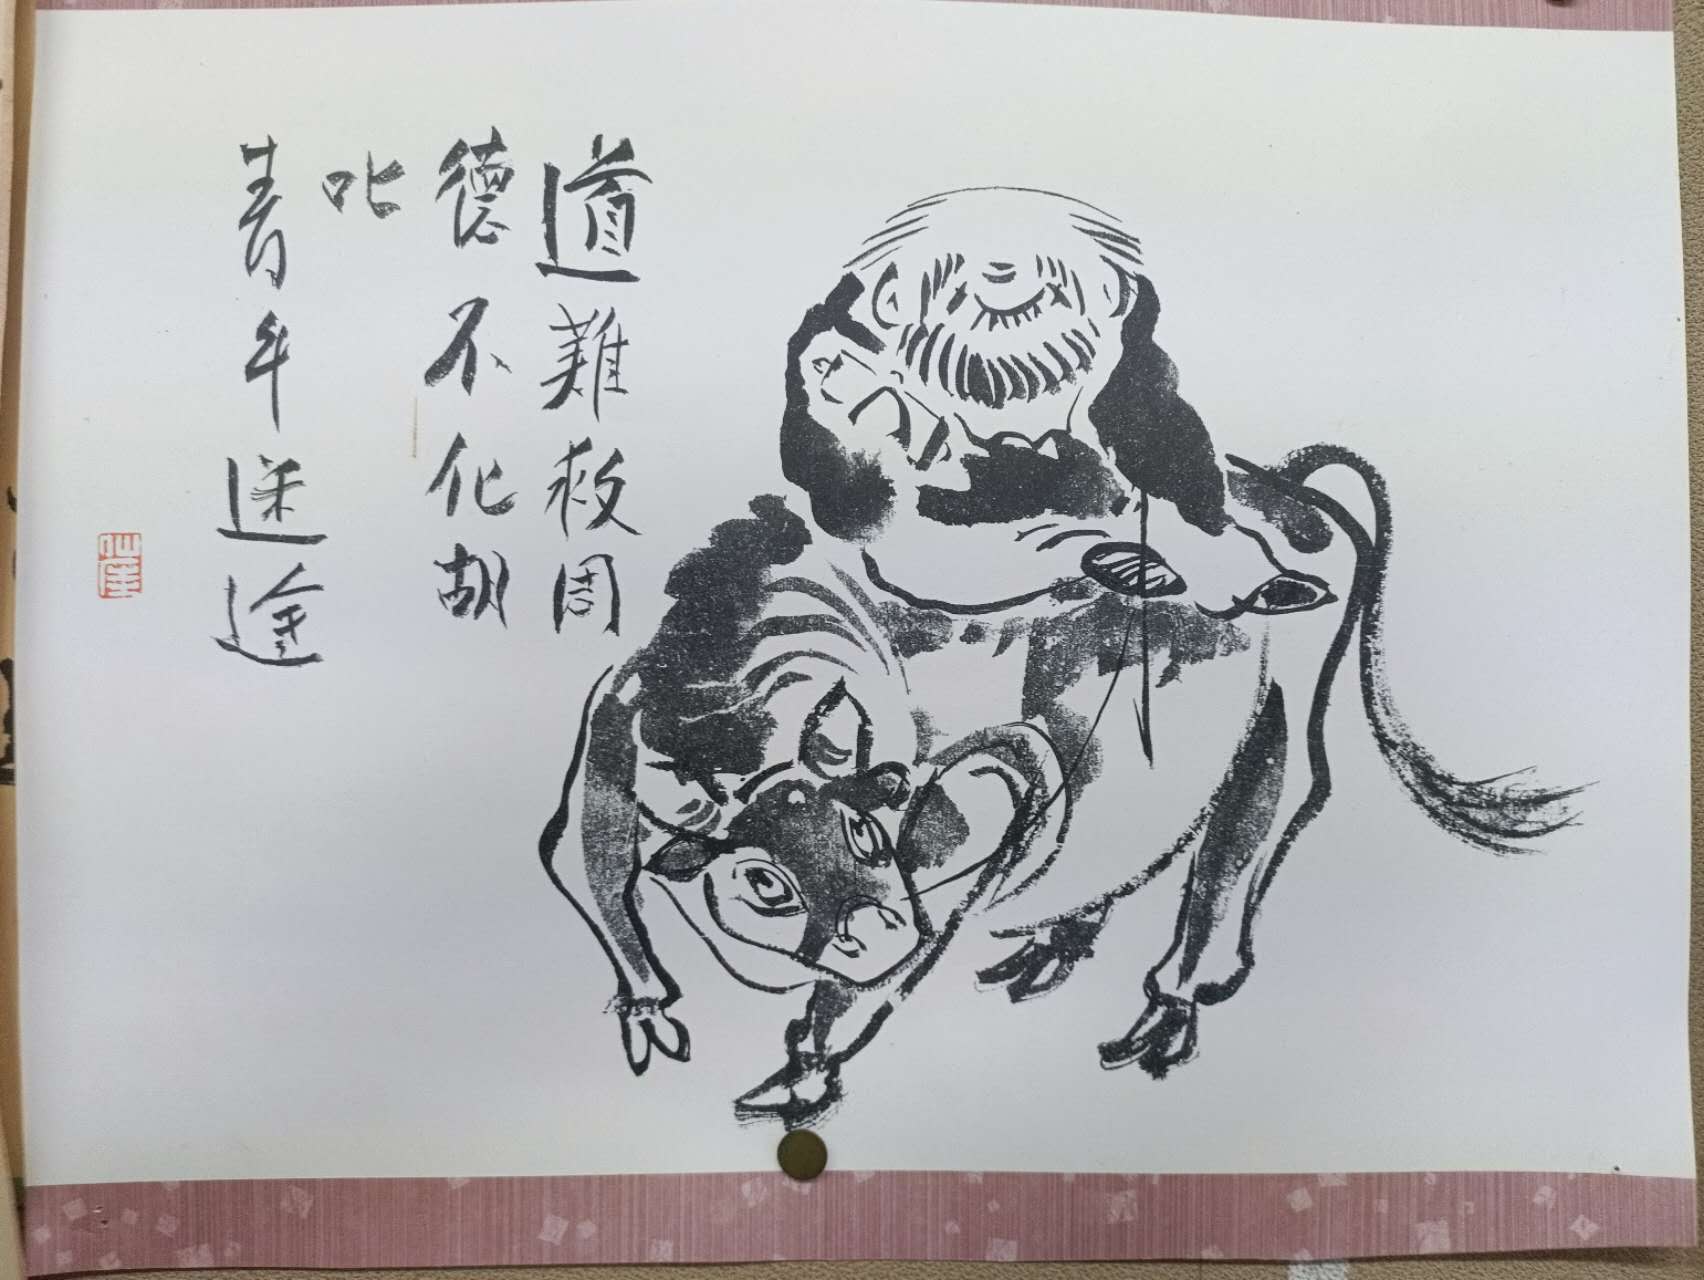 道難救周
德不化胡
叱
青牛迷途